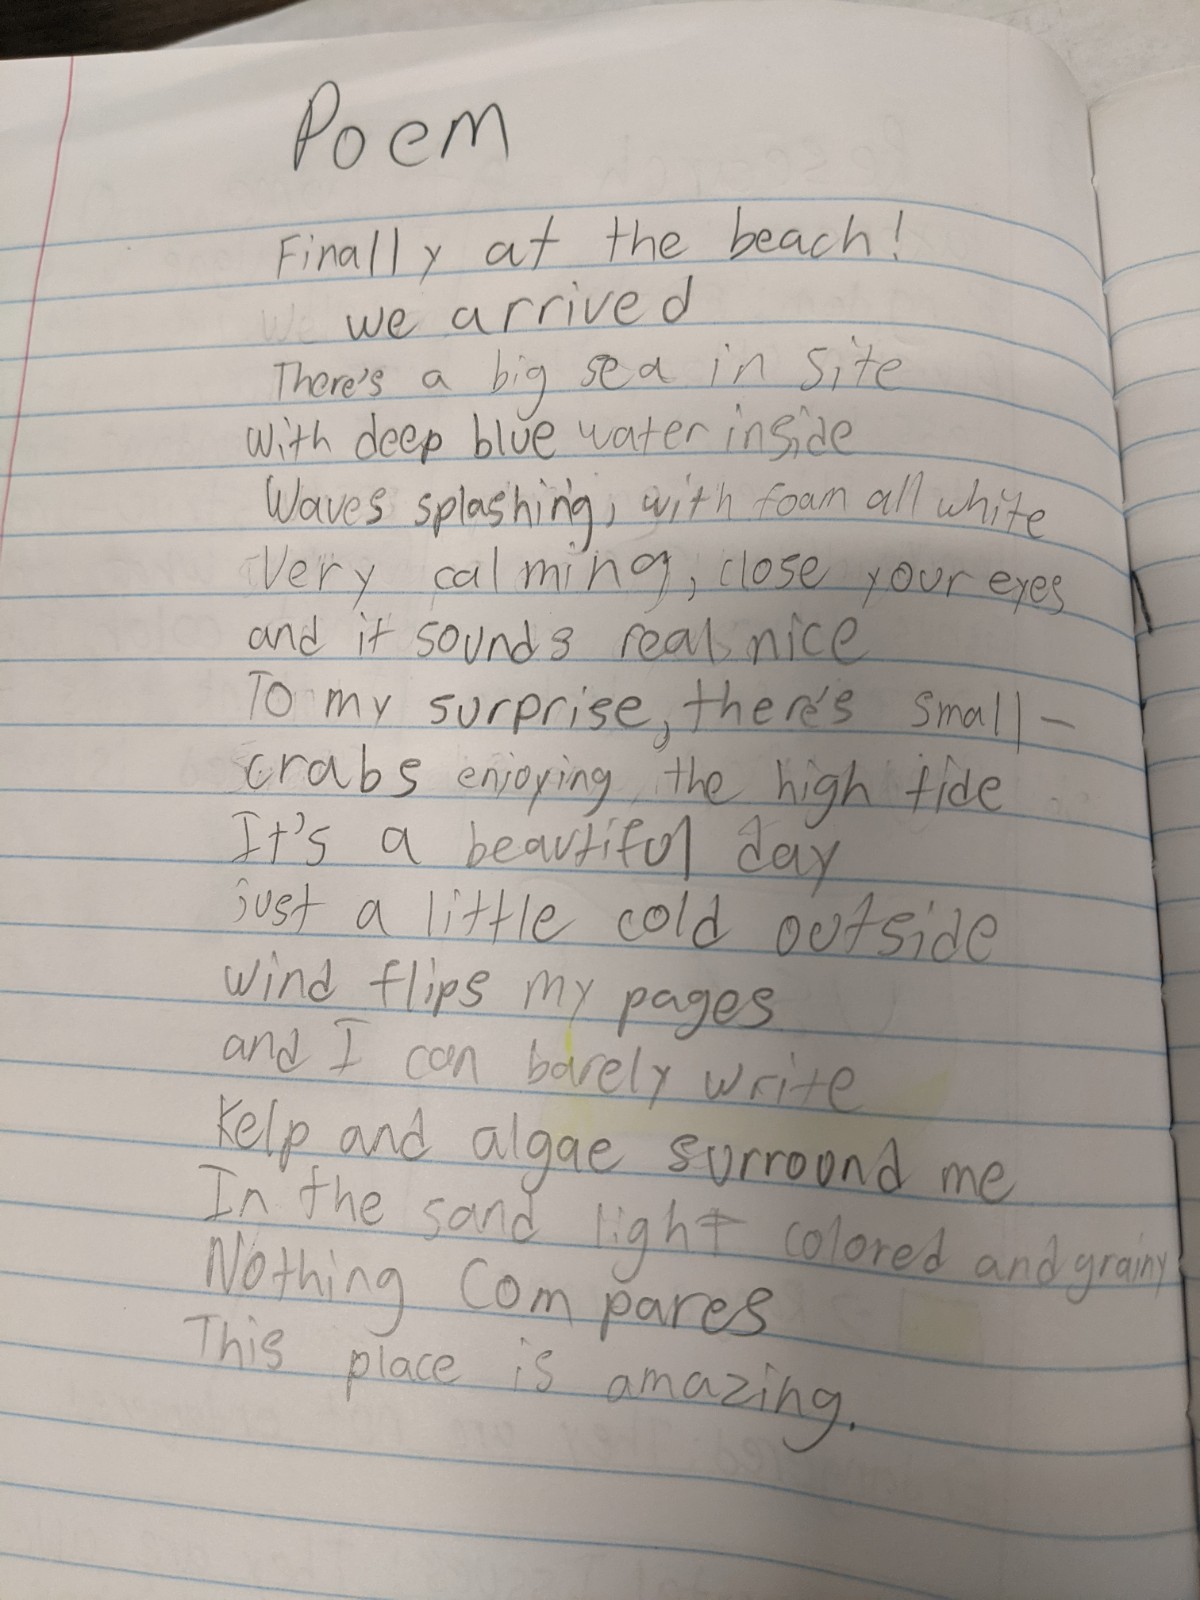 Poem
Finally at the beach!
we arrived
There's a big sea in site
with deep blue water inside
Waves splashing, with foam all white
Very calming, close your eyes
and it sounds real nice
To my surprise, there's small-
crabs enjoying the high tide
It's a beautiful day
just a little cold outside
wind flips my pages
and I can barely write
Kelp and algae surround me
In the sand light colored and grainy
Nothing Compares
This place is amazing.